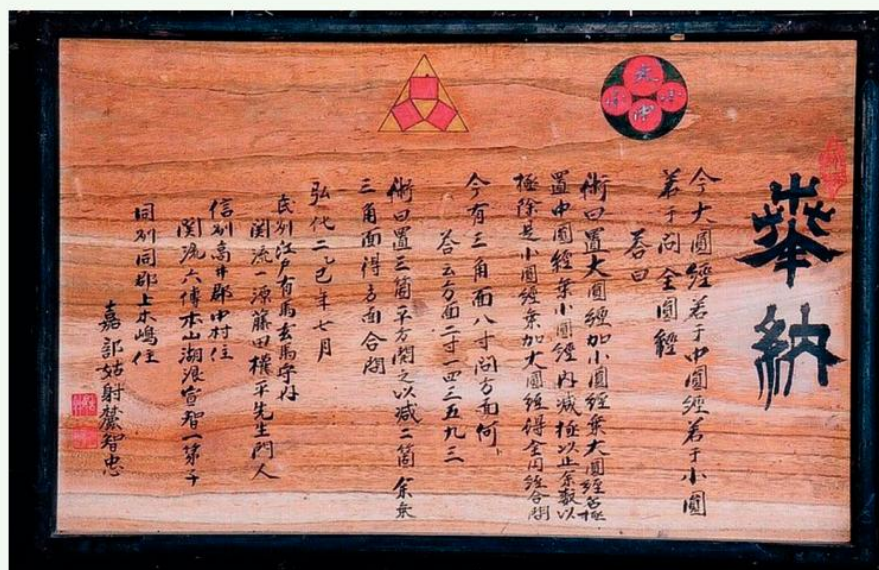 奉納
大
小
小
中
今大圓經若干中圓經若干小圓
若干問全圓經
答曰
術曰置大圓經加小圓經乗大圓經名極
置中圓經乗小圓經内減極以止余数以
極除是小圓經乗加大圓經得全円經合問
今有三角面八寸問方面何
答云方面二寸一四三五九三
術曰置三箇平方開之以減二箇余乗
三角面得方面合問
弘化二乙巳年七月
武州江戸有馬玄馬守内
関流一源藤田権平先生門人
信州高井郡中村住
関流六傳木山湖浪宣智一第子
同州同郡上木嶋住
嘉部姑射麓智忠